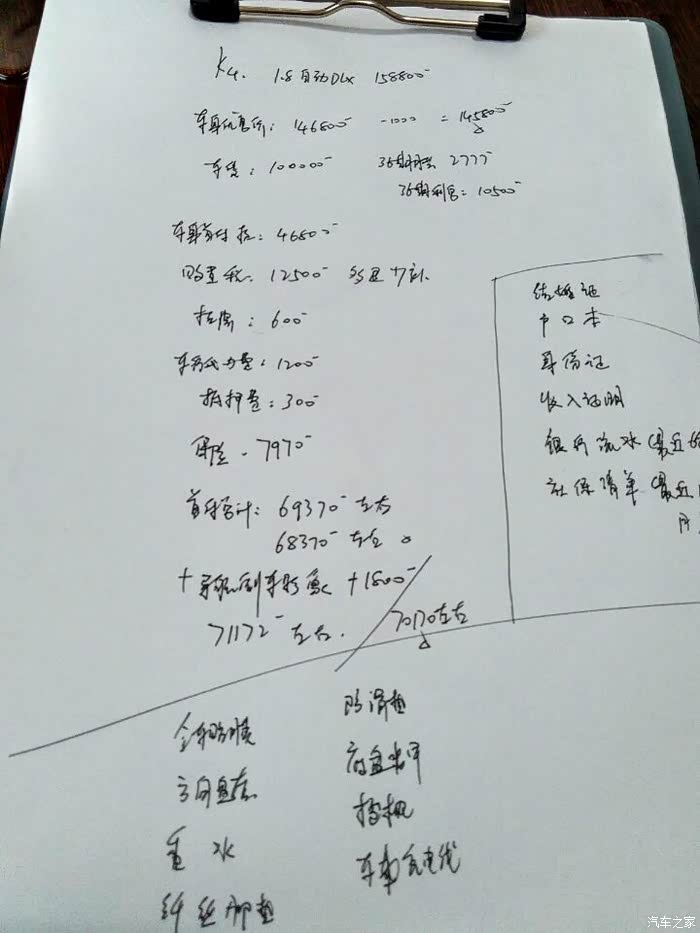 K4. 1.8自动DLX 158800
车身优惠价: 146800 -1000 = 145800
车贷: 100000 36期月供 2777
36期利息: 10500
车身首付款: 46800
购置税: 12500 多退少补
挂牌: 600
车务代办费: 1200
抵押费: 300
保险 - 7970
首付合计: 69370 左右
68370 左右
+ 导航倒车影像 +1800
71172 左右. 70170左右
结婚证
户口本
身份证
收入证明
银行流水(最近
社保清单(最近
月
全车贴膜
方向盘套
香水
纤丝脚垫
防滑垫
底盘装甲
挡板
车载充电线
汽车之家